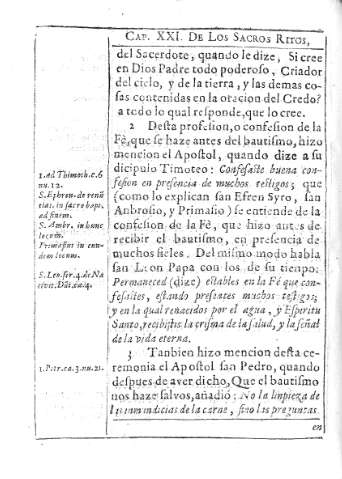 CAP. XXI. DE LOS SACROS RITOS,
del Sacerdote, quando le dize, Si cree
en Dios Padre todo poderoso, Criador
del cielo, y de la tierra, y las demas co-
sas contenidas en la oracion del Credo?
a todo lo qual responde, que lo cree.
2 Desta profesion, o confesion de la
Fè, que se haze antes del bautismo, hizo
mencion el Apostol, quando dize a su
dicipulo Timoteo: Confesaste buena con-
fesion en presencia de muchos testigos; que
(como lo explican san Efren Syro, san
Ambrosio, y Primasio) se entiende de la
confesion de la Fè, que hizo antes de
recibir el bautismo, en presencia de
muchos fieles. Del mismo modo habla
san Leon Papa con los de su tiempo:
Permaneced (dize) estables en la Fè que con-
fesastes, estando presentes muchos testigos;
y en la qual renacidos por el agua, y Espiritu
Santo, recibistis la crisma de la salud, y la señal
de la vida eterna.
3 Tanbien hizo mencion desta ce-
remonia el Apostol san Pedro, quando
despues de aver dicho, Que el bautismo
nos haze salvos, añadiò: No la limpieza de
las inmundicias de la carne, sino las preguntas
en
1. Ad Thimoth. c. 6
nu. 12.
S. Ephren. de
tiat. in sacro bapt.
ad finem.
S. Ambr. in hunc
locum.
Primasius in eun-
dem locum.
S. Leo. ser. 4. de Na
1. Petr. ca. 3. nu. 21.